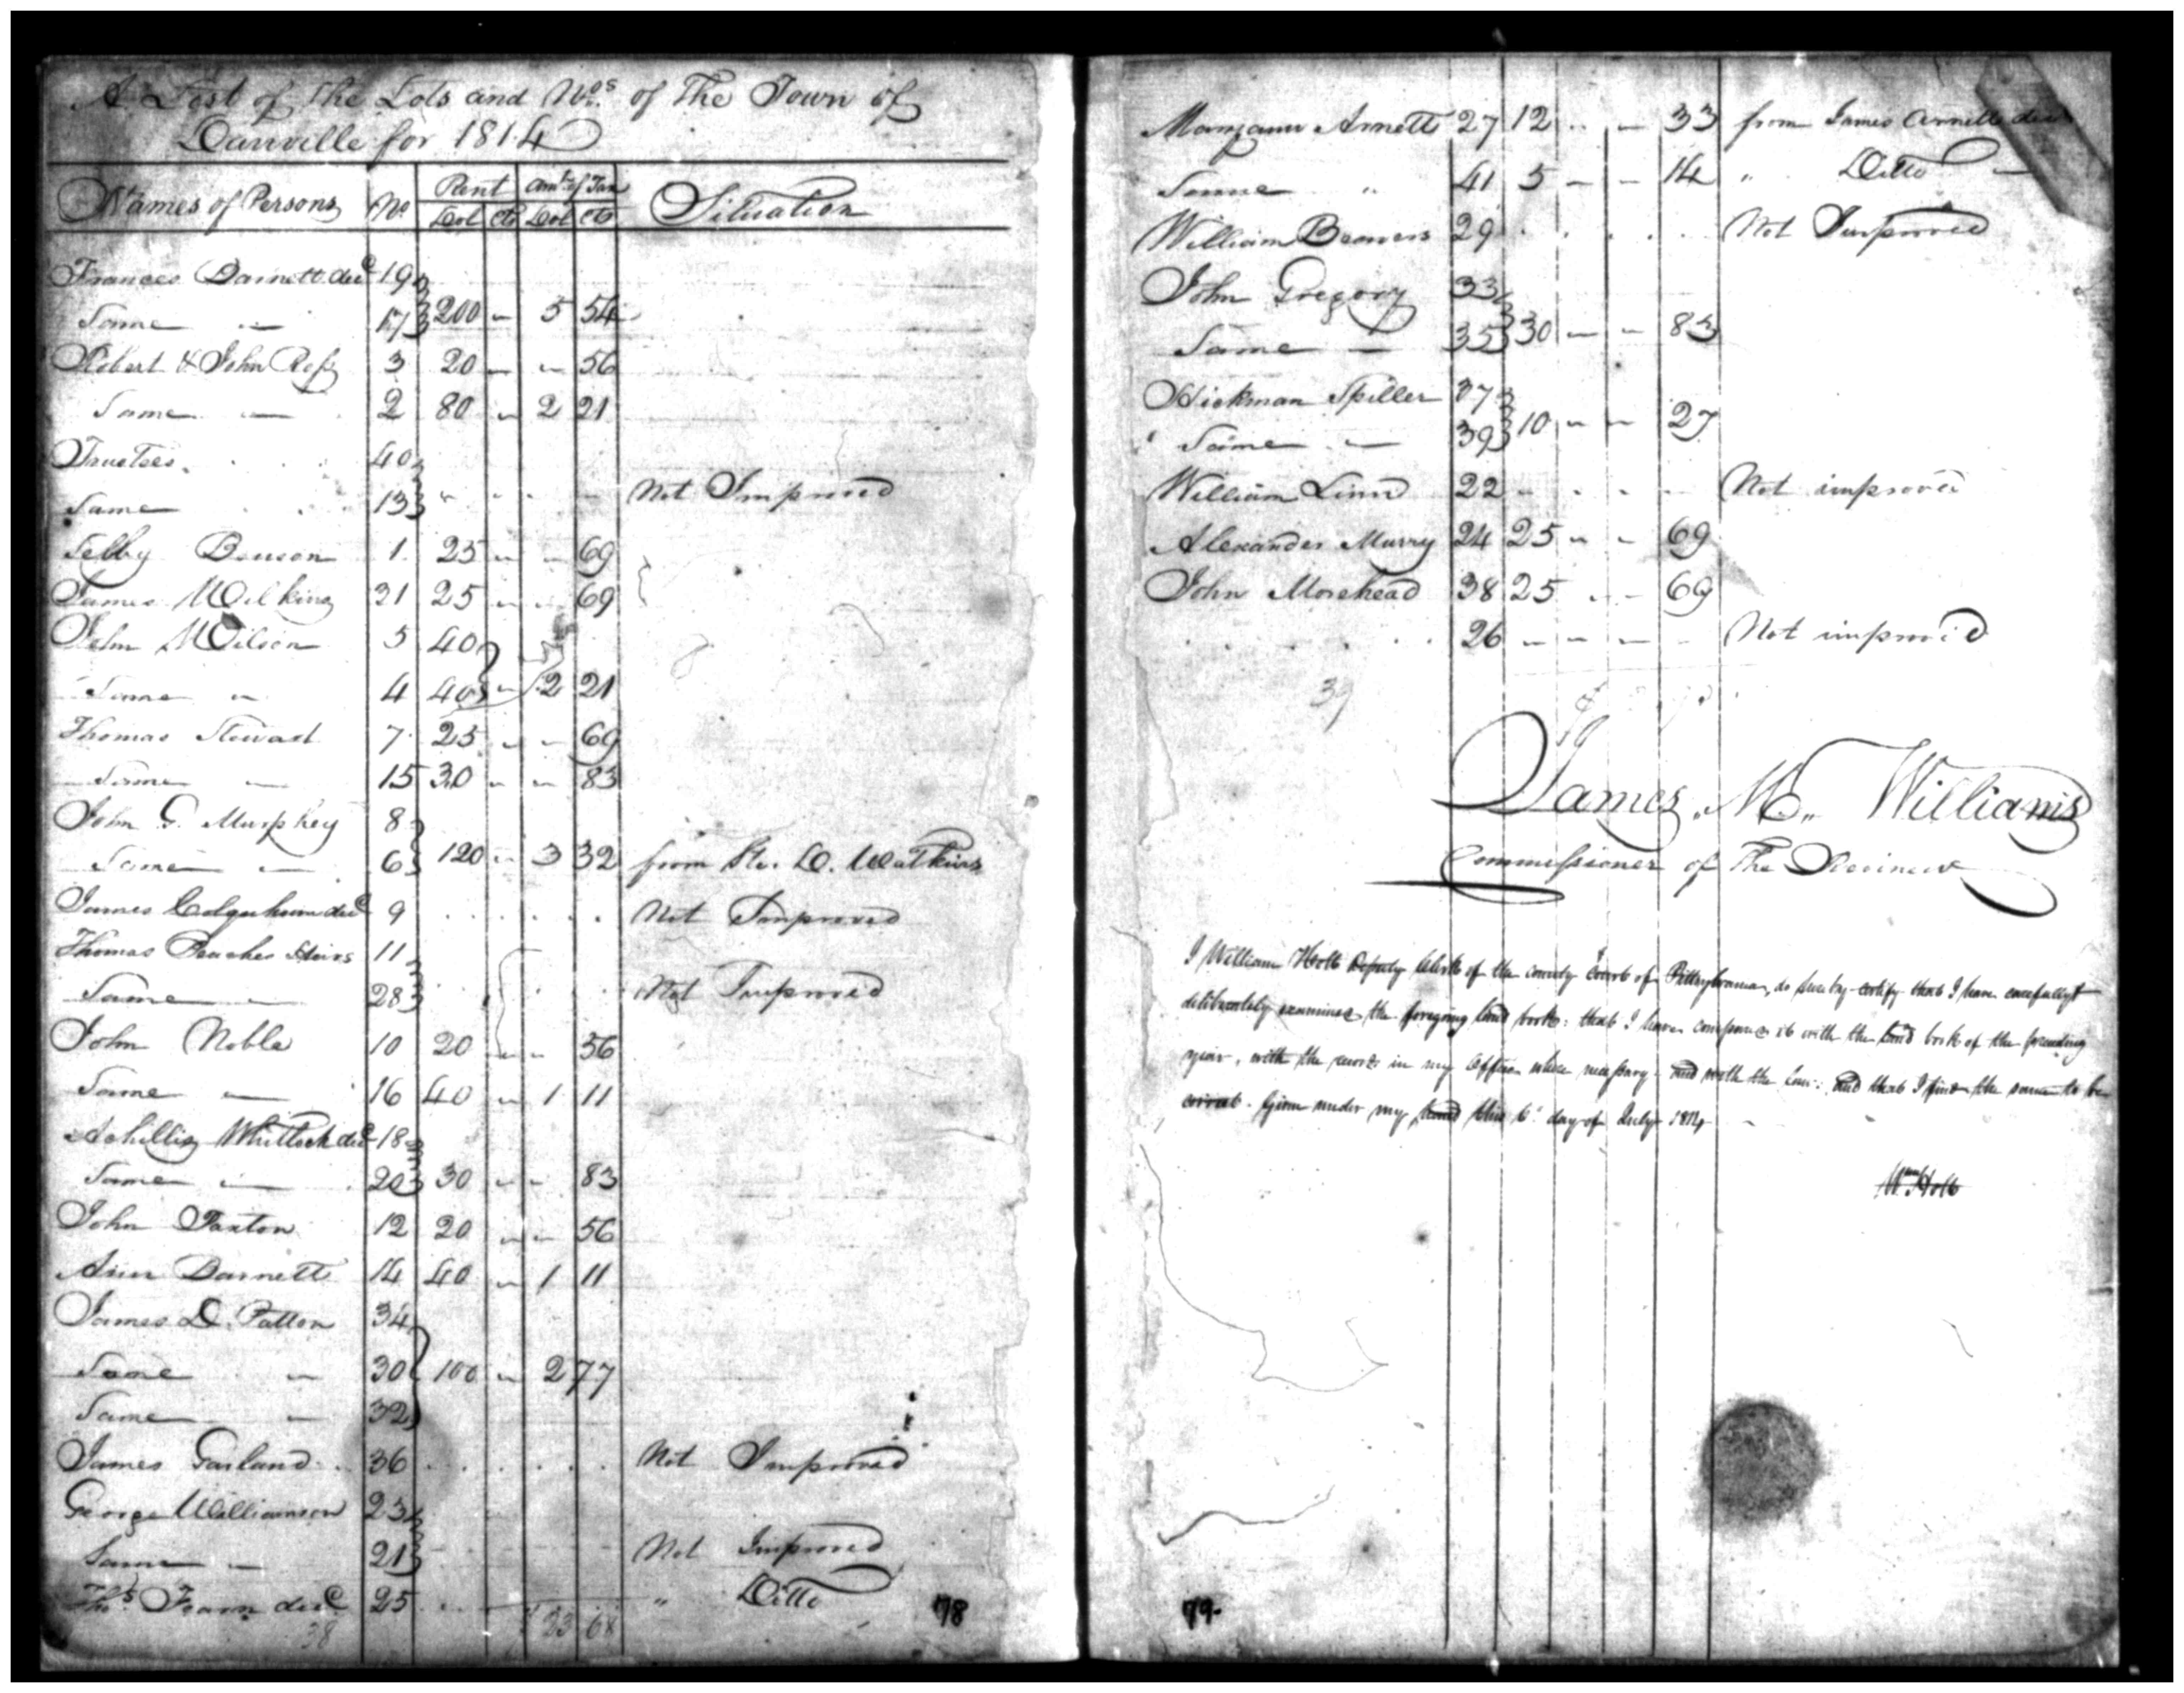 A List of The Lots and Nos. of The Town of
Danville for 1814
Names of Persons No Rent Amt. of Tax Situation
Dol Cts Dol Cts
Frances Barnett decd 19
Same 17 200 - 5 54
Robert & John Ross 3 20 - - 56
Same 2 80 - 2 21
Trustees 40
Same 13 Not Improved
Selby Benson 1 25 - - 69
James Wilking 31 25 - - 69
John Wilson 5 40
Same 4 40 - 2 21
Thomas Stewart 7 25 - - 69
Same 15 30 - - 83
John G. Murphey 8
Same 6 120 - 3 32 from D. Watkins
James Colquhoun decd 9 Not Improved
Thomas Heirs 11
Same 28 Not Improved
John Noble 10 20 - - 56
Same 16 40 - 1 11
Achillis Whitlock decd 18
Same 20 30 - - 83
John Paxton 12 20 - - 56
Ann Barnett 14 40 - 1 11
James D. Patton 34
Same 30 100 - 2 77
Same 32
James Garland 36 Not Improved
George Williamson 23
Same 21 Not Improved
Thos. Fearn decd 25 " Ditto
38 $ 23 68 78
Arnett 27 12 - - 33 from James Arnett decd
Same " 41 5 - - 14 " Ditto
William Beavers 29 Not Improved
John Gregory 33
Same 35 30 - - 83
Hickman Spiller 37
Same 39 10 - - 27
William Linn 22 - - - - Not improved
Alexander Murry 24 25 - - 69
John Morehead 38 25 - - 69
26 - - - - Not improved
39
James M. Williams
Commissioner of The Revinew
I William Holt Deputy Clerk of the county Court of Pittsylvania, do hereby certify that I have carefully &
deliberately examined the foregoing land book: that I have compared it with the land book of the preceding
year, with the records in my Office where necessary and with the law: and that I find the same to be
correct. Given under my hand this 6th day of July 1814
Wm Holt
79